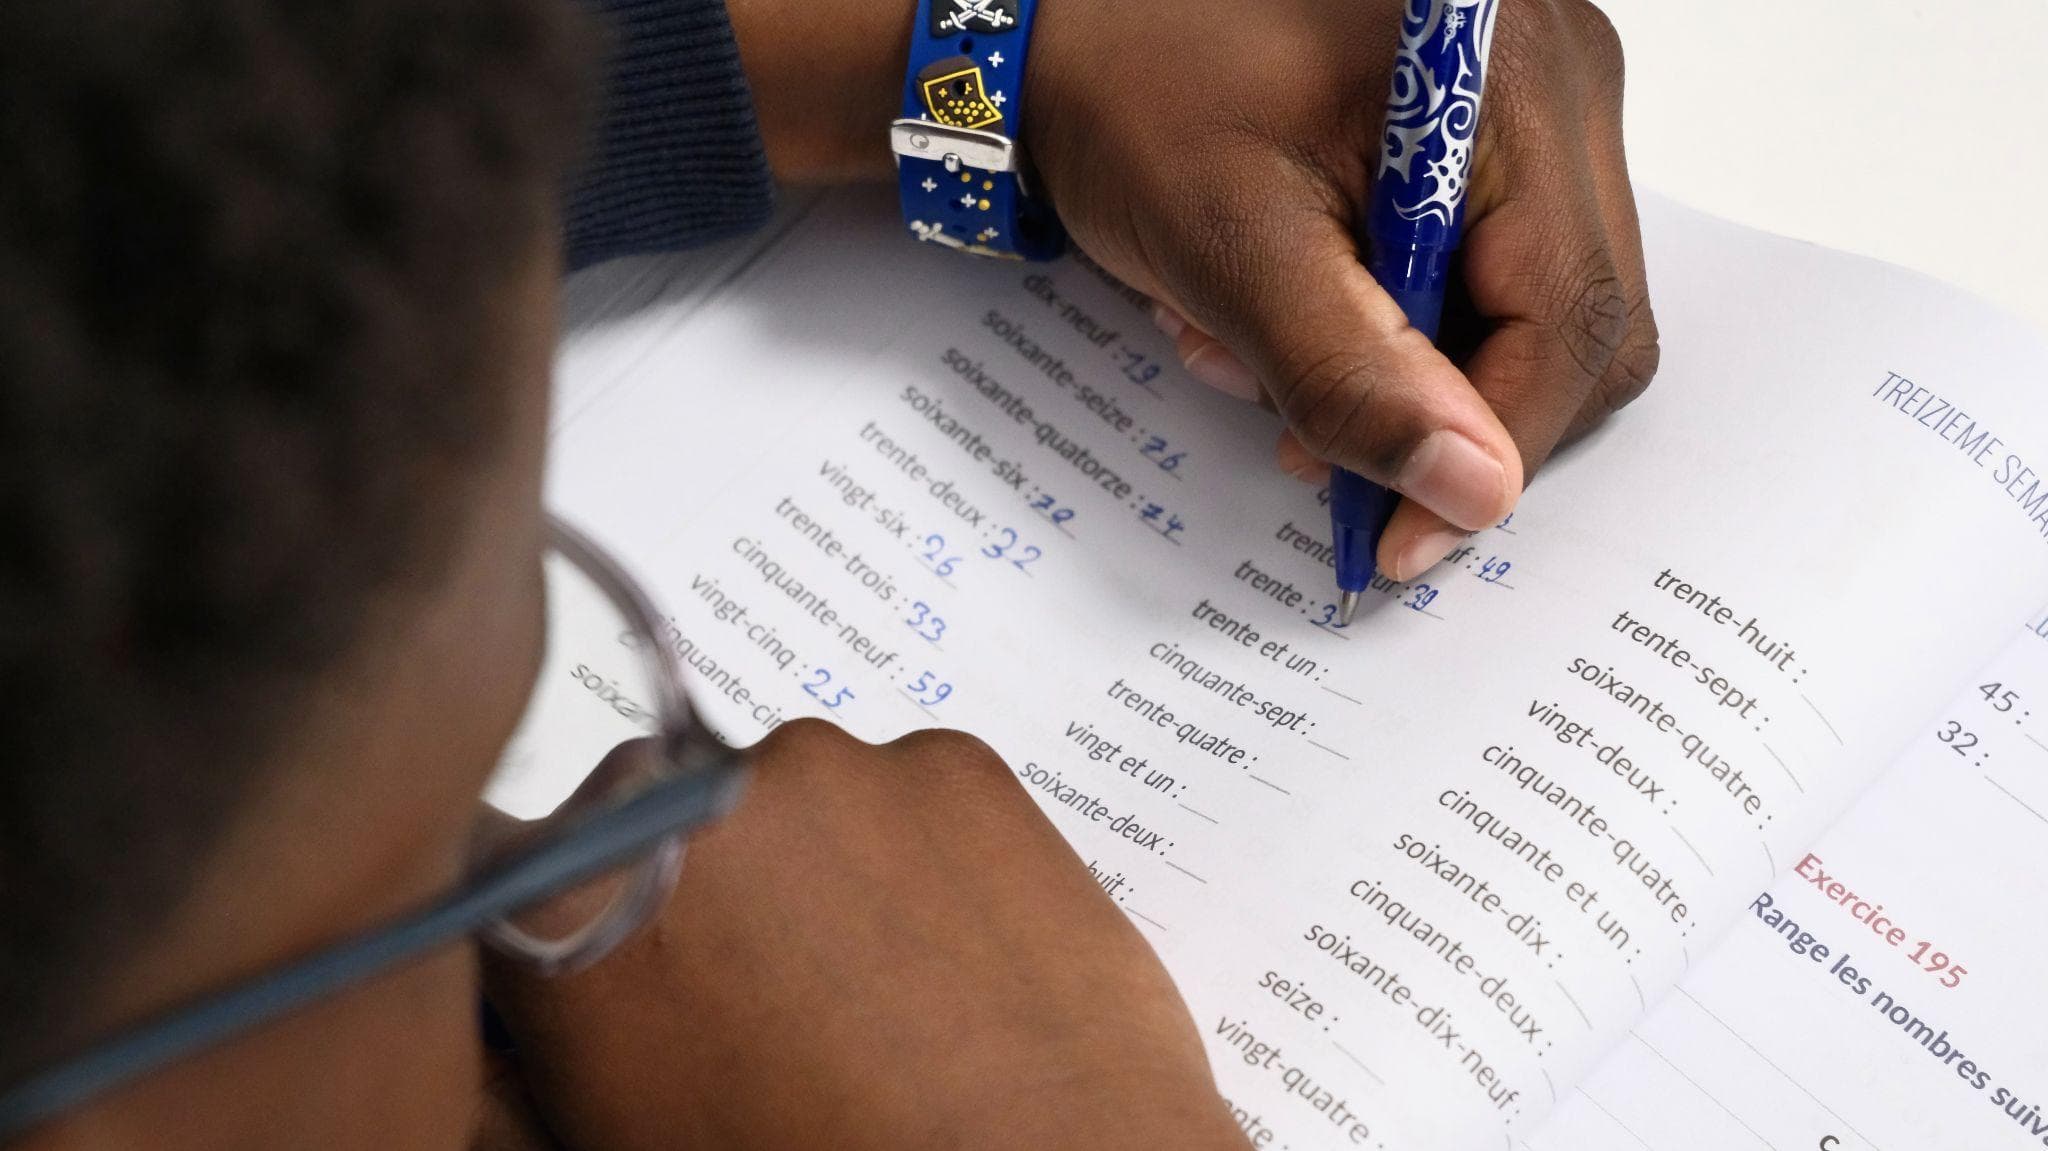 dix-neuf : 19
soixante-seize : 76
soixante-quatorze : 74
soixante-six :
trente-deux : 32
vingt-six : 26
trente-trois : 33
cinquante-neuf : 59
vingt-cinq : 25
cinquante-cin
soixan
q uf : 49
trente eur : 39
trente : 3
trente et un :
cinquante-sept :
trente-quatre :
vingt et un :
soixante-deux :
huit :
trente-huit :
trente-sept :
soixante-quatre :
vingt-deux :
cinquante-quatre :
cinquante et un :
soixante-dix :
cinquante-deux :
soixante-dix-neuf :
seize :
vingt-quatre :
TREIZIEME SEMA
45 :
32 :
Exercice 195
Range les nombres suiv